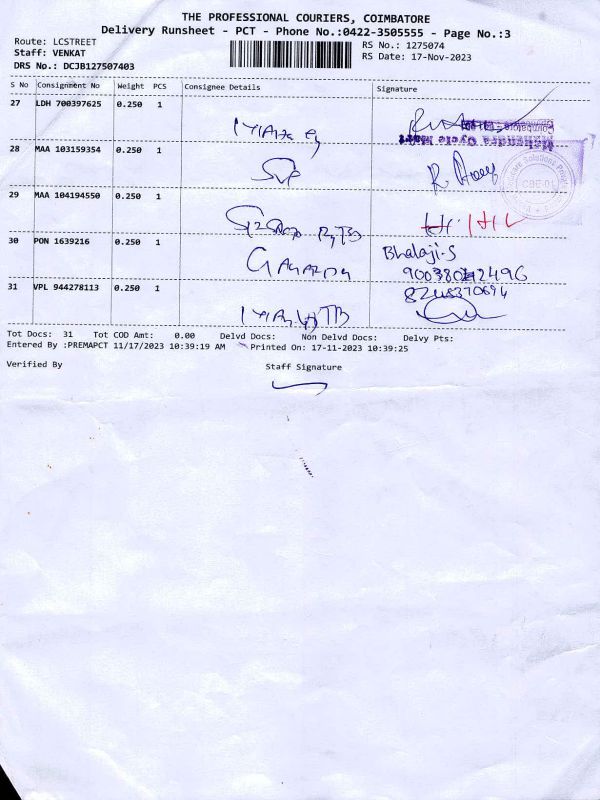 THE PROFESSIONAL COURIERS, COIMBATORE
Delivery Runsheet - PCT - Phone No.:0422-3505555 - Page No.:3
Route: LCSTREET
Staff: VENKAT
DRS No.: DCJB127507403
RS No.: 1275074
RS Date: 17-Nov-2023
S No Consignment No Weight PCS Consignee Details Signature
27 LDH 700397625 0.250 1
28 MAA 103159354 0.250 1
29 MAA 104194550 0.250 1
30 PON 1639216 0.250 1 Bhalaji.S
31 VPL 944278113 0.250 1
Tot Docs: 31 Tot COD Amt: 0.00 Delvd Docs: Non Delvd Docs: Delvy Pts:
Entered By :PREMAPCT 11/17/2023 10:39:19 AM Printed On: 17-11-2023 10:39:25
Verified By Staff Signature